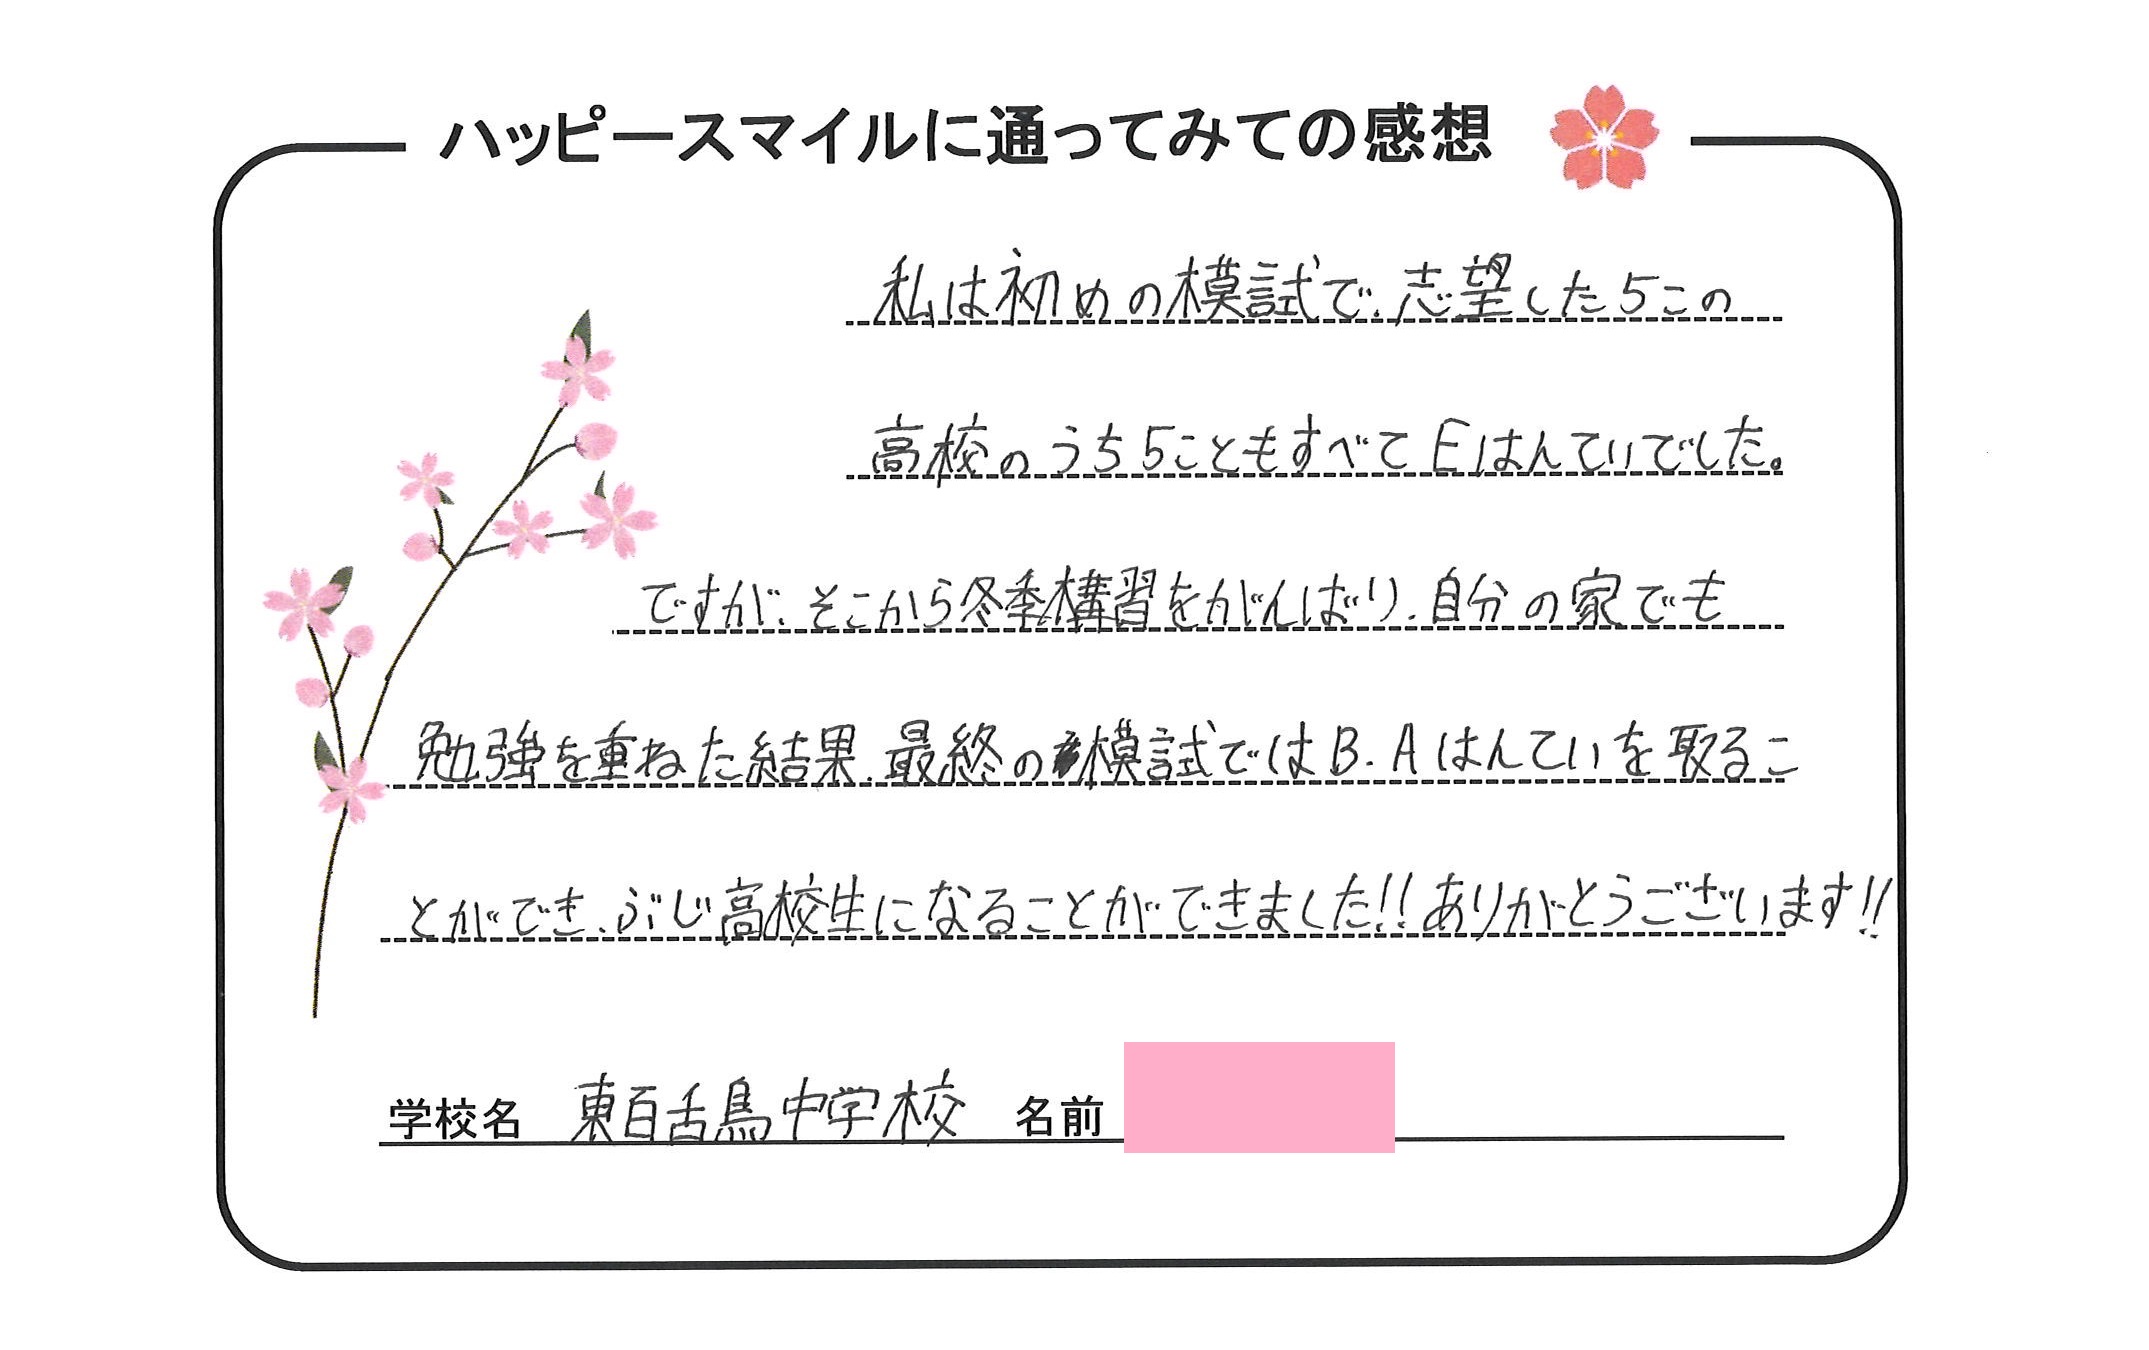 ハッピースマイルに通ってみての感想
私は初めの模試で、志望した5この
高校のうち5こともすべてEはんていでした。
ですが、そこから冬季構習をがんばり、自分の家でも
勉強を重ねた結果、最終の模試ではB、Aはんていを取るこ
とができ、ぶじ高校生になることができました!!ありがとうございます!!
学校名 東百舌鳥中学校 名前